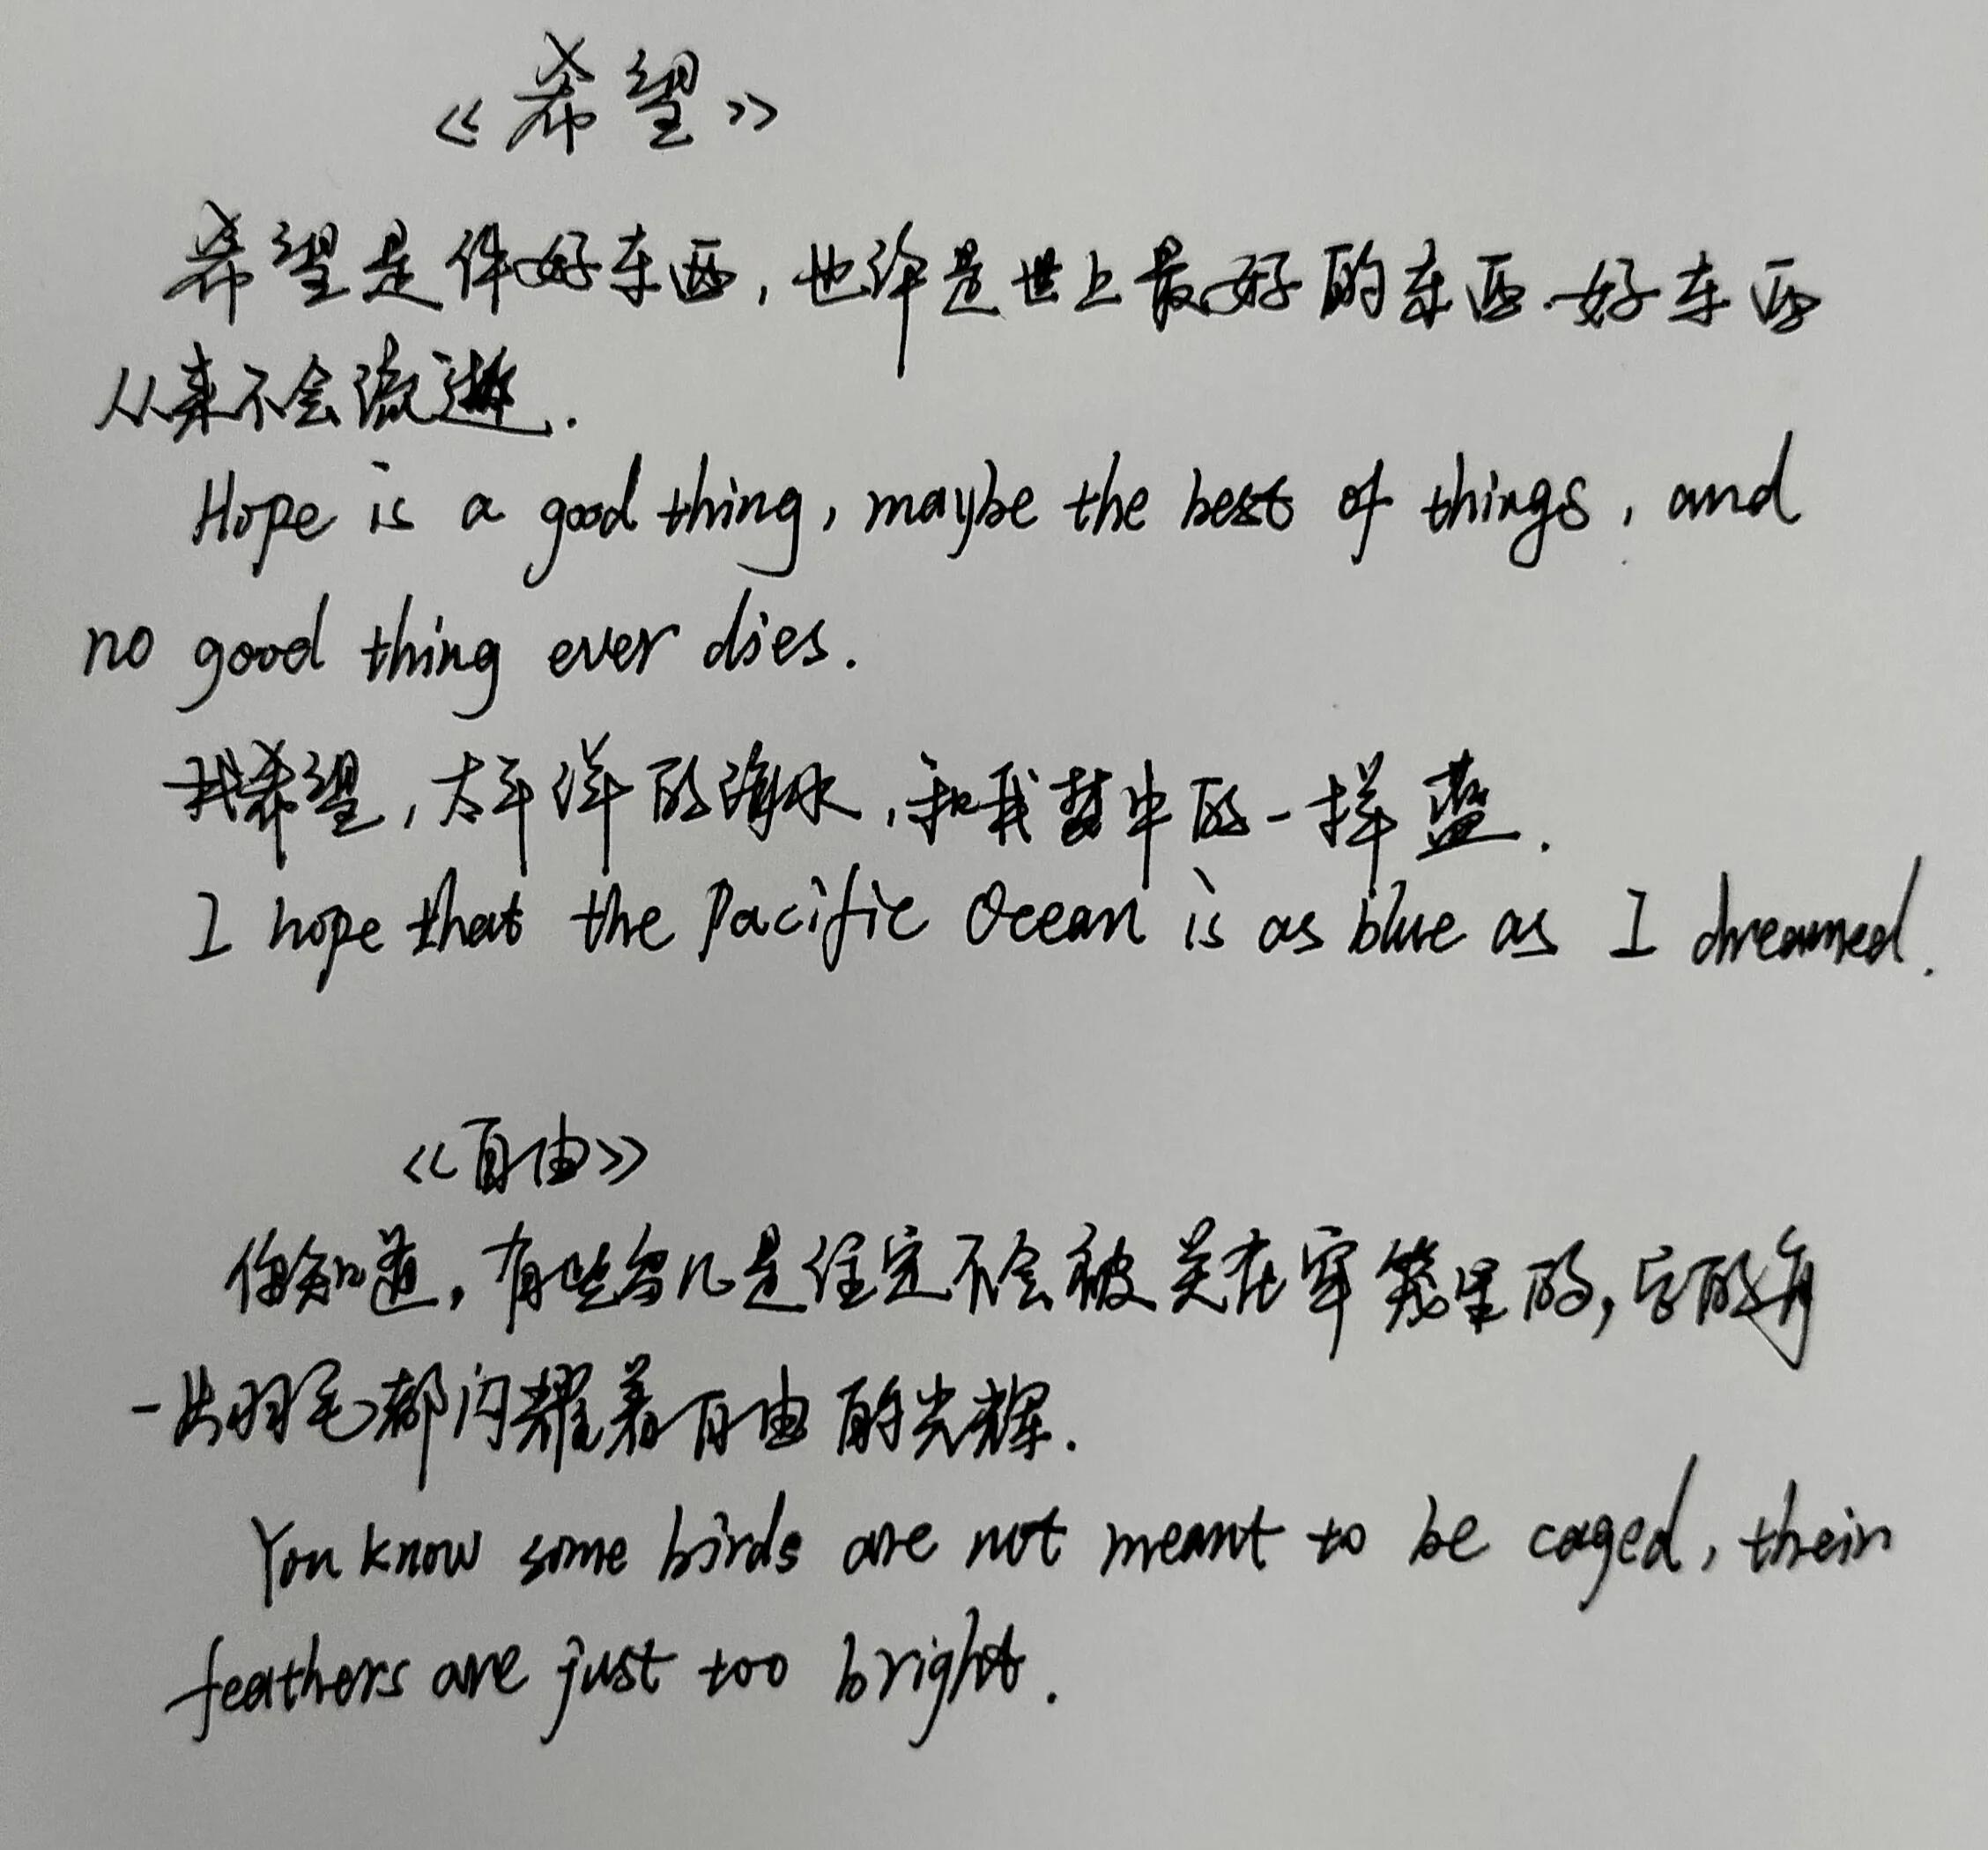 《希望》
希望是件好东西,也许是世上最好的东西.好东西
从来不会流逝.
Hope is a good thing, maybe the best of things, and
no good thing ever dies.
我希望,太平洋的海水,和我梦中的一样蓝.
I hope that the Pacific Ocean is as blue as I dreamed.
《自由》
你知道,有些鸟儿是注定不会被关在牢笼里的,它的每
一片羽毛都闪耀着自由的光辉.
You know some birds are not meant to be caged, their
feathers are just too bright.